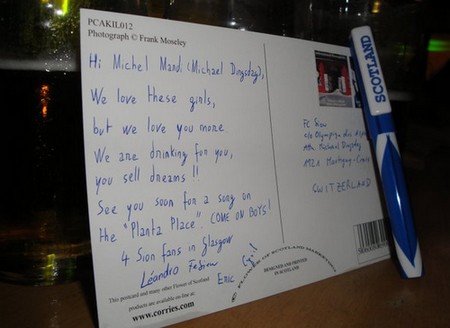 PCAKIL012
Photograph © Frank Moseley
Hi Michel Mand. (Michael Dingsdag),
We love these girls,
but we love you more.
We are drinking for you,
you sell dreams !!
See you soon for a song on
the "Planta Place". COME ON BOYS!
4 Sion fans in Glasgow
Léandro Fabien Eric
This postcard and many other Flower of Scotland
products are available on-line at:
www.corries.com
© FLOWER OF SCOTLAND MARKETING
DESIGNED AND PRINTED
IN SCOTLAND
FC Sion
c/o Olympique des Alpes
Attn Michael Dingsdag
1921 Martigny-Croix
SWITZERLAND
SCOTLAND